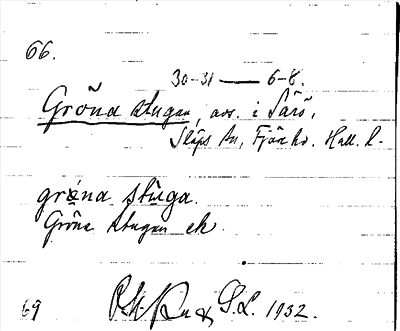 66.
30-31 — 6-8.
Gröna stugan, avs. i Särö,
Släps sn, Fjäre hd. Hall. l.
gröna stuga.
Gröna stugan ek
69 G.L. 1932.